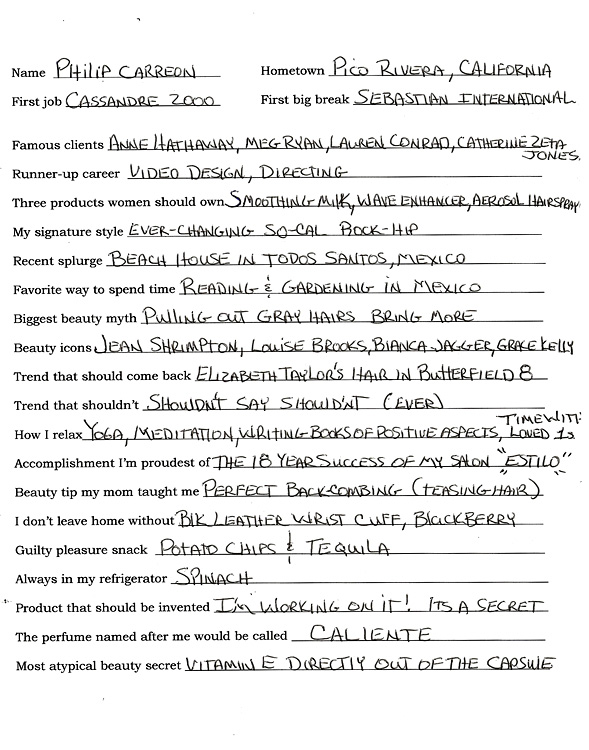 Name PHILIP CARREON Hometown PICO RIVERA, CALIFORNIA
First job CASSANDRE 2000 First big break SEBASTIAN INTERNATIONAL
Famous clients ANNE HATHAWAY, MEG RYAN, LAUREN CONRAD, CATHERINE ZETA
JONES.
Runner-up career VIDEO DESIGN, DIRECTING
Three products women should own SMOOTHING MILK, WAVE ENHANCER, AEROSOL HAIRSPRAY
My signature style EVER-CHANGING SO-CAL ROCK-HIP
Recent splurge BEACH HOUSE IN TODOS SANTOS, MEXICO
Favorite way to spend time READING & GARDENING IN MEXICO
Biggest beauty myth PULLING OUT GRAY HAIRS BRING MORE
Beauty icons JEAN SHRIMPTON, LOUISE BROOKS, BIANCA JAGGER, GRACE KELLY
Trend that should come back ELIZABETH TAYLOR'S HAIR IN BUTTERFIELD 8
Trend that shouldn't SHOULDN'T SAY SHOULD'NT (EVER)
TIME WITH
How I relax YOGA, MEDITATION, WRITING BOOKS OF POSITIVE ASPECTS, LOVED 1s
Accomplishment I'm proudest of THE 18 YEAR SUCCESS OF MY SALON "ESTILO"
Beauty tip my mom taught me PERFECT BACK-COMBING (TEASING HAIR)
I don't leave home without BLK LEATHER WRIST CUFF, BLACKBERRY
Guilty pleasure snack POTATO CHIPS & TEQUILA
Always in my refrigerator SPINACH
Product that should be invented I'M WORKING ON IT! ITS A SECRET
The perfume named after me would be called CALIENTE
Most atypical beauty secret VITAMIN E DIRECTLY OUT OF THE CAPSULE